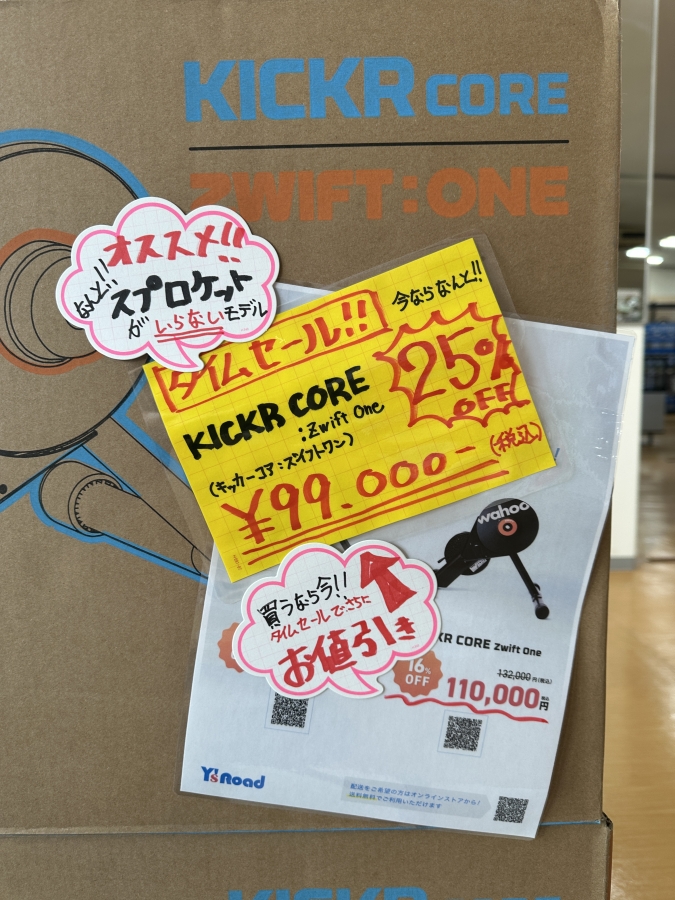 KICKR CORE
ZWIFT:ONE
オススメ!!
なんと!!
スプロケット
がいらないモデル
今ならなんと!!
タイムセール!!
25%
OFF
KICKR CORE
:Zwift One
(キッカーコア:ズイフトワン)
¥99.000-
(税込)
wahoo
買うなら今!!
タイムセールでさらに
お値引き
KR CORE Zwift One
16%
OFF
132,000円(税込)
110,000税込円
Y'sRoad
配送をご希望の方はオンラインストアから!
送料無料でご利用いただけます